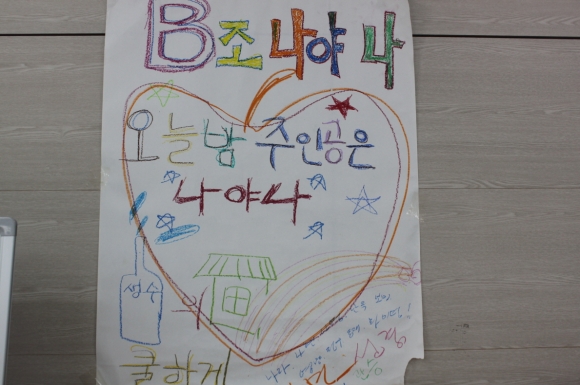 B조 나야 나
오늘밤 주인공은
나야 나
성수
쿨하게